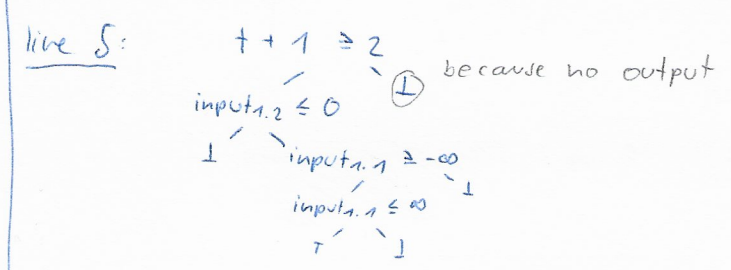 line 5: t + 1 ≥ 2
⊥ because no output
input1.2 ≤ 0
⊥ input1.1 ≥ -∞
⊥
input1.1 ≤ ∞
⊤ ⊥